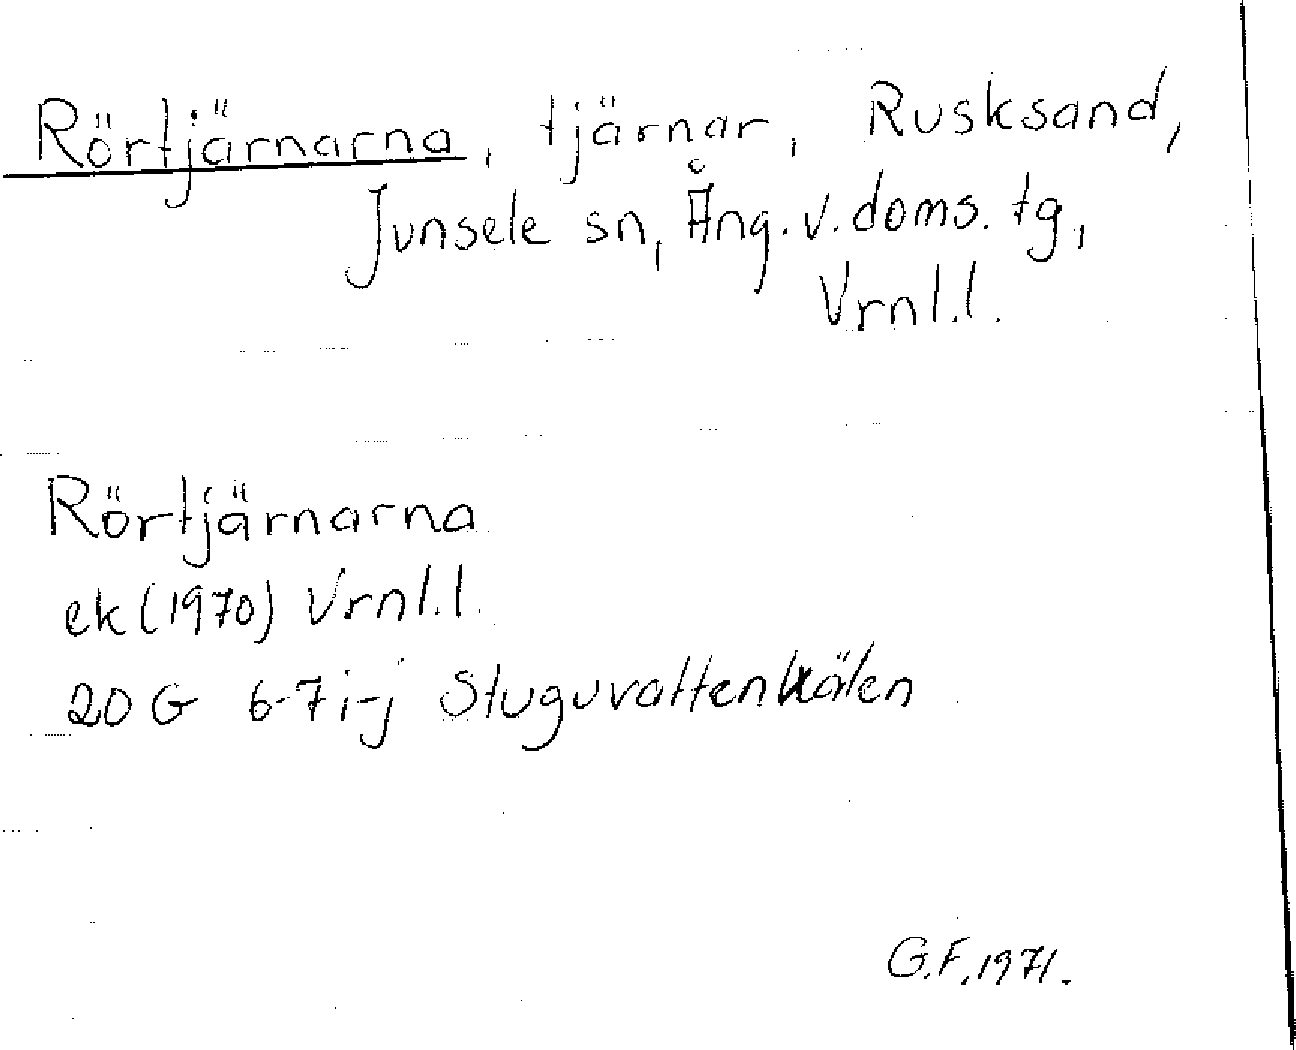 Rörtjärnarna, tjärnar, Rusksand,
Junsele sn, Ång. v. doms. tg,
Vrnl.l.
Rörtjärnarna
ek (1970) Vrnl.l.
20 G 6-7 i-j Stuguvattenkälen
G.F. 1971.